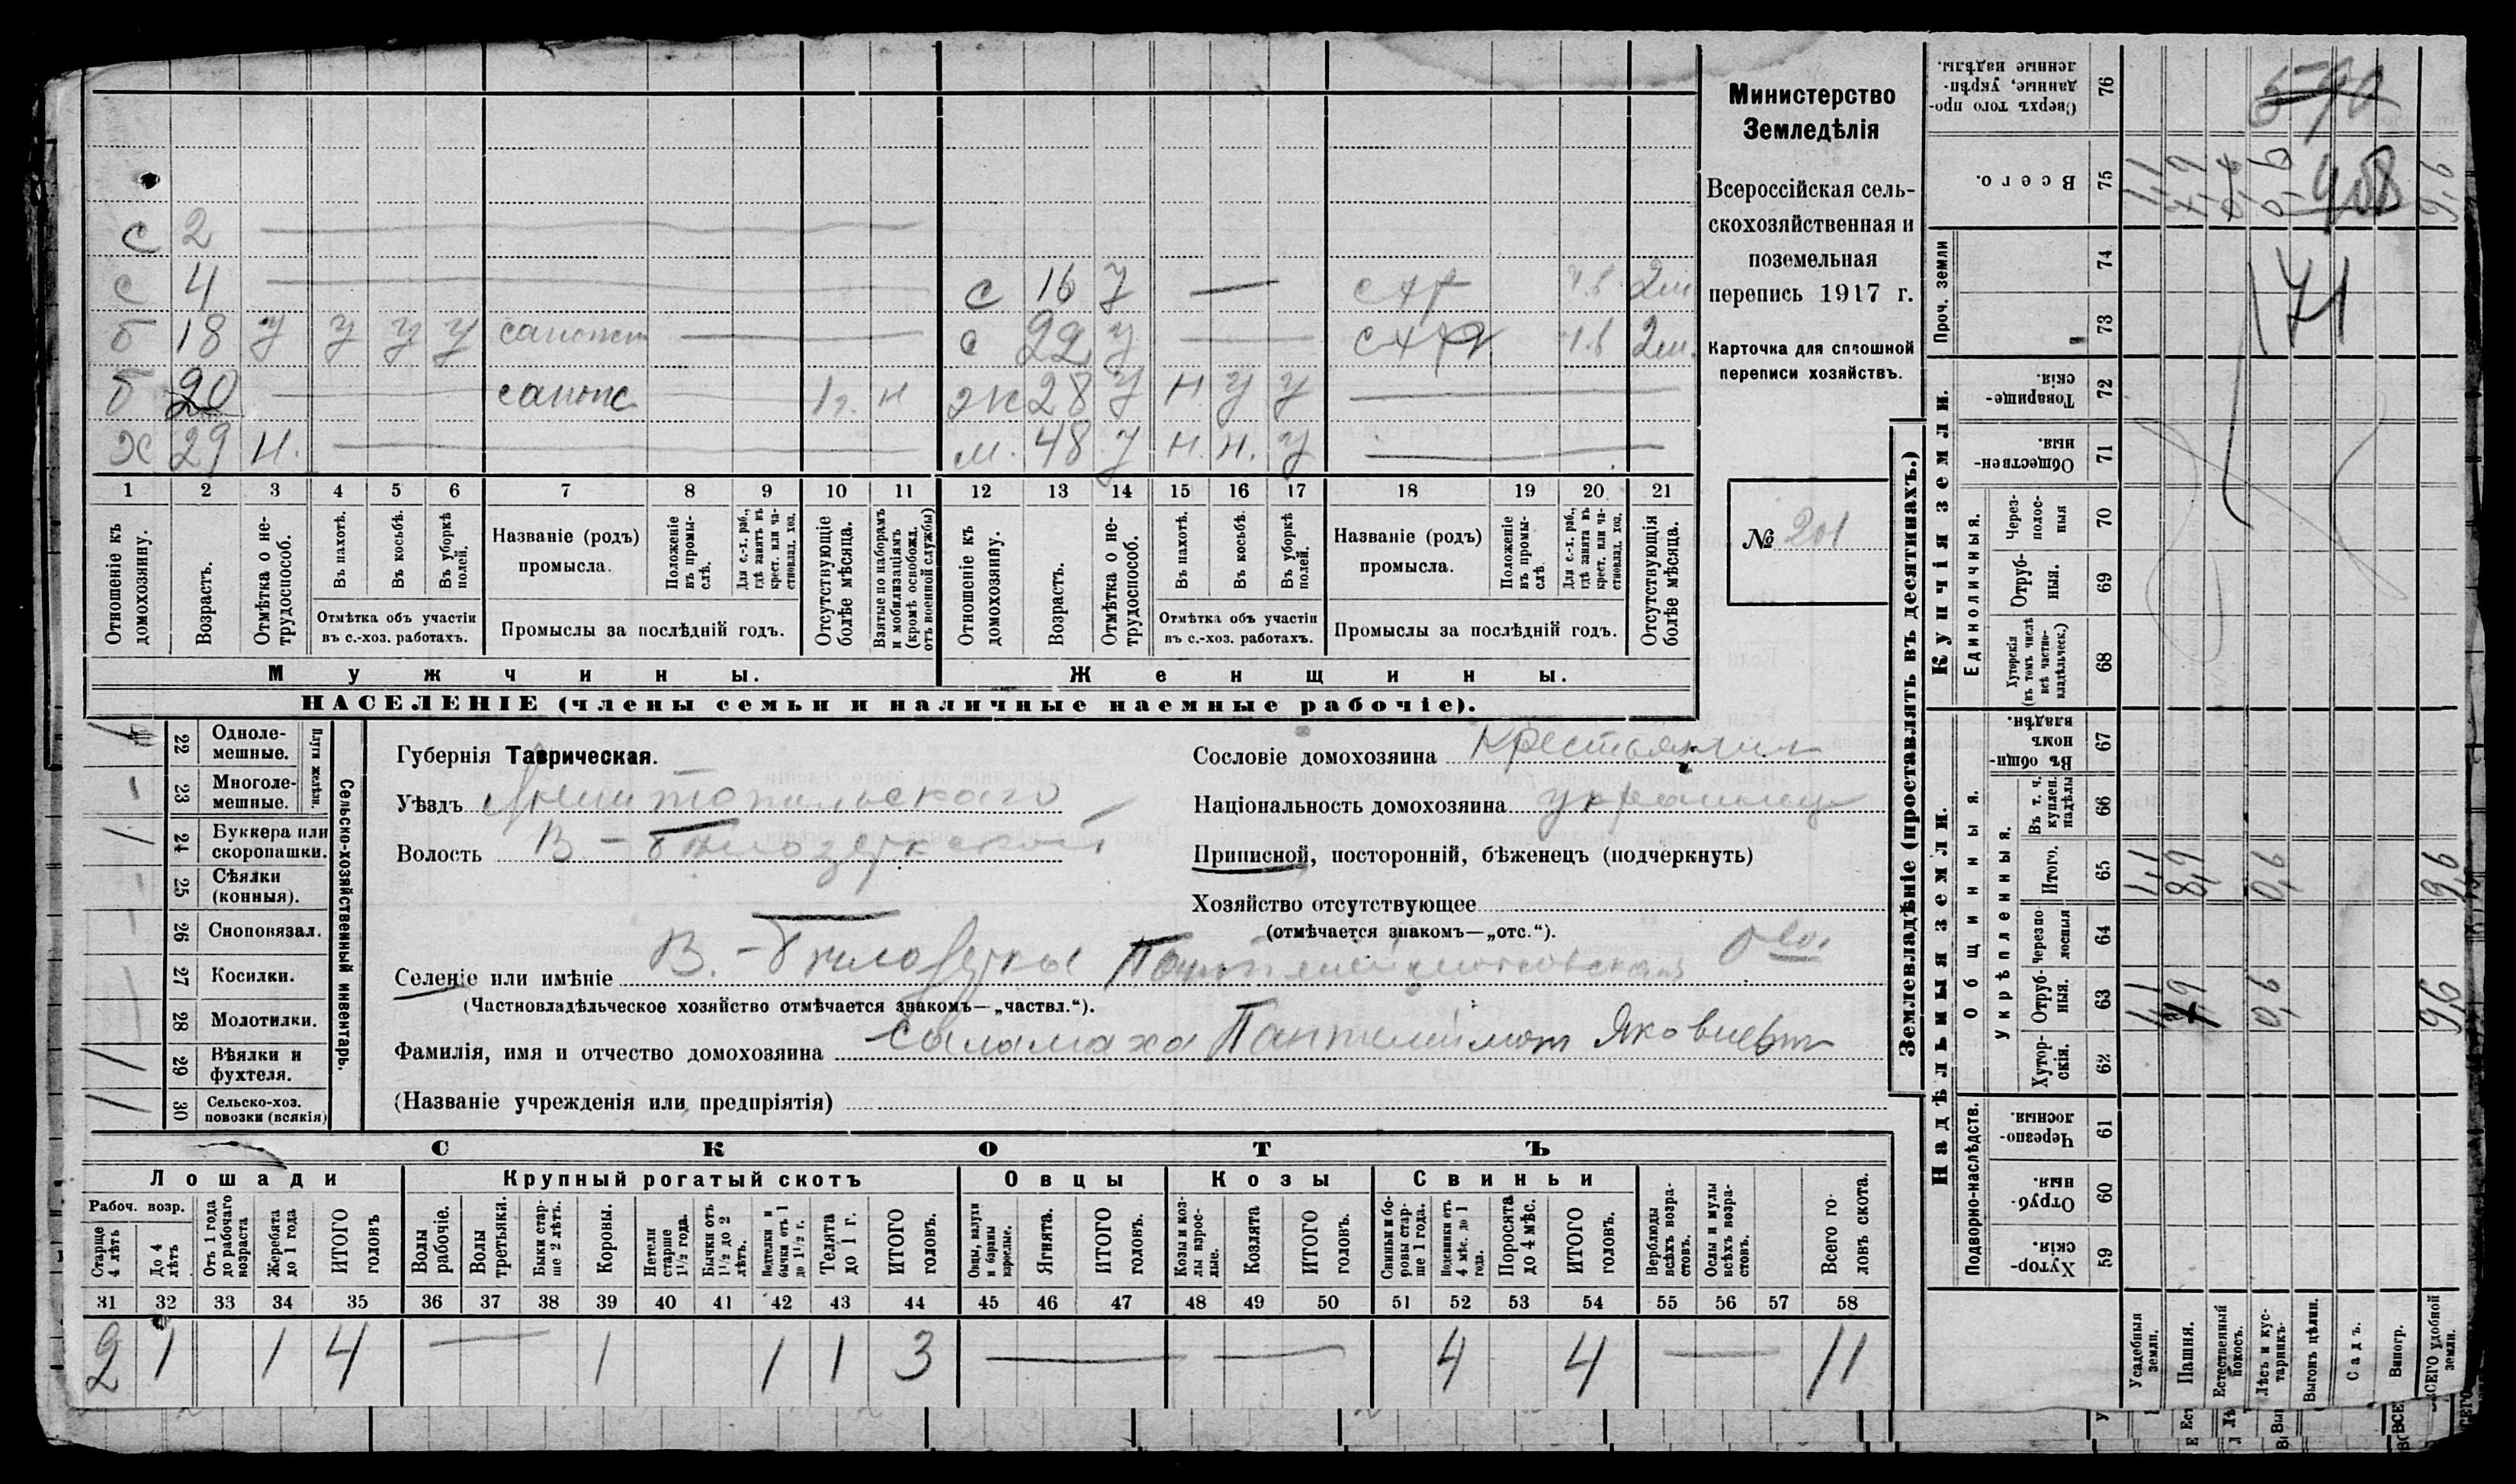 с 2
с 4
б 18 у у у у сапожн
б 20 сапож 1г. н
х 29 н.
с 16 у — 2м
с 22 у — 2м.
ж 28 у н у у
м. 48 у н. н. у
1 2 3 4 5 6 7 8 9 10 11 12 13 14 15 16 17 18 19 20 21
Отношеніе къ домохозяину.
Возрастъ.
Отмѣтка о не-трудоспособ.
Въ пахотѣ.
Въ косьбѣ.
Въ уборкѣ полей.
Отмѣтка объ участіи
въ с.-хоз. работахъ.
Названіе (родъ)
промысла.
Положеніе въ промы-слѣ.
Для с.-х. раб., гдѣ занятъ въ крест. или ча-стновлад. хоз.
Промыслы за послѣдній годъ.
Отсутствующіе болѣе мѣсяца.
Взятые по наборамъ и мобилизаціямъ (кромѣ освобожд. отъ военной службы)
Отношеніе къ домохозяину.
Возрастъ.
Отмѣтка о не-трудоспособ.
Въ пахотѣ.
Въ косьбѣ.
Въ уборкѣ полей.
Отмѣтка объ участіи
въ с.-хоз. работахъ.
Названіе (родъ)
промысла.
Положеніе въ промы-слѣ.
Для с.-х. раб., гдѣ занята въ крест. или ча-стновлад. хоз.
Промыслы за послѣдній годъ.
Отсутствующія болѣе мѣсяца.
Мужчины.
Женщины.
НАСЕЛЕНІЕ (члены семьи и наличные наемные рабочіе).
Министерство
Земледѣлія
Всероссійская сель-
скохозяйственная и
поземельная
перепись 1917 г.
Карточка для сплошной
переписи хозяйствъ.
№ 201
22 Одноле-мешные.
23 Многоле-мешные.
Плуги желѣзн.
24 Буккера или скоропашки.
25 Сѣялки (конныя).
26 Сноповязал.
27 Косилки.
28 Молотилки.
29 Вѣялки и фухтеля.
30 Сельско-хоз. повозки (всякія)
Сельско-хозяйственный инвентарь.
Губернія Таврическая.
Уѣздъ Мелитопольскаго
Волость В.-Бѣлозерской
Селеніе или имѣніе В.-Бѣлозерка
(Частновладѣльческое хозяйство отмѣчается знакомъ—„частвл.“).
Фамилія, имя и отчество домохозяина Саламаха Пантелеймон Яковлевич
(Названіе учрежденія или предпріятія)
Сословіе домохозяина Крестьянин
Національность домохозяина украинец
Приписной, посторонній, бѣженецъ (подчеркнуть)
Хозяйство отсутствующее
(отмѣчается знакомъ—„отс.“).
СКОТЪ
Лошади
Крупный рогатый скотъ
Овцы
Козы
Свиньи
Рабоч. возр.
Старше 4 лѣтъ
До 4 лѣтъ
Отъ 1 года до рабочаго возраста
Жеребята до 1 года
ИТОГО головъ
Волы рабочіе.
Волы третьяки.
Быки стар-ше 2 лѣтъ.
Коровы.
Нетели старше 1½ года.
Бычки отъ 1½ до 2 лѣтъ.
Подтелки и бычки отъ 1 до 1½ г.
Телята до 1 г.
ИТОГО головъ.
Овцы, валухи и бараны взрослые.
Ягнята.
ИТОГО головъ.
Козы и коз-лы взрос-лые.
Козлята
ИТОГО головъ.
Свиньи и бо-ровы стар-ше 1 года.
Подсвинки отъ 4 мѣс. до 1 года.
Поросята до 4 мѣс.
ИТОГО головъ.
Верблюды всѣхъ возра-стовъ.
Ослы и мулы всѣхъ возра-стовъ.
Всего го-ловъ скота.
31 32 33 34 35 36 37 38 39 40 41 42 43 44 45 46 47 48 49 50 51 52 53 54 55 56 57 58
2 1 1 4 — 1 1 1 3 — — 4 4 — 11
Землевладѣніе (проставлять въ десятинахъ.)
Надѣльныя земли.
Купчія земли.
Проч. земли
Подворно-наслѣдств.
Общинныя.
Укрѣпленныя.
Единоличныя.
Хутор-скія. 59
Отруб-ныя. 60
Черезпо-лосныя. 61
Хутор-скія. 62
Отруб-ныя. 63
Черезпо-лосныя 64
Итого. 65
Въ т. ч. куплен. надѣлы 66
Въ общи-номъ владѣн. 67
Хуторскія (въ томъ числѣ всѣ частно-владѣльческ.) 68
Отруб-ныя. 69
Через-полос-ныя 70
Обществен-ныя. 71
Товарище-скія. 72
73
74
Всего. 75
Сверхъ того про-данные, укрѣп-ленные надѣлы. 76
Усадебныя земли.
Пашня.
Естественный покосъ.
Лѣсъ и кус-тарникъ.
Выгонъ цѣлин.
Садъ.
Виногр.
ВСЕГО удобной земли.
1,1 8,9 0,6 9,6
0,6 9,6
590
171